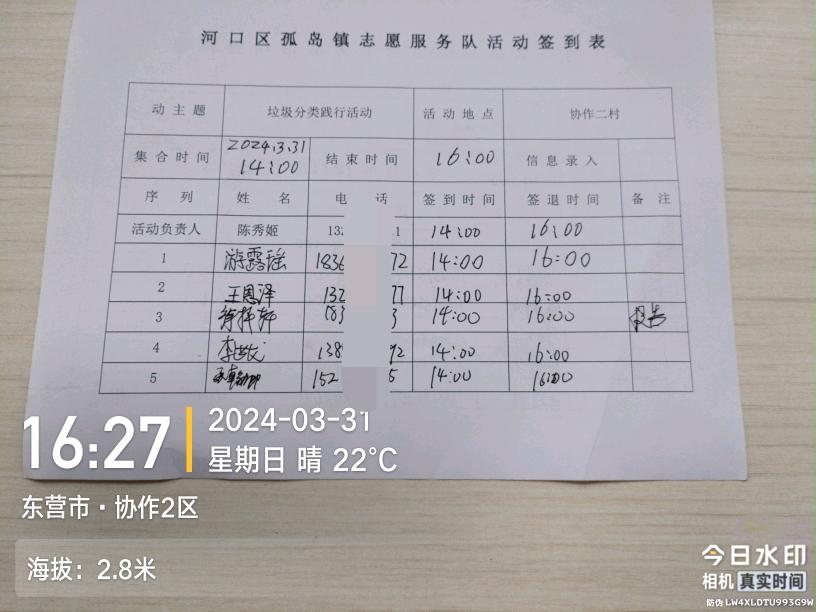 河口区孤岛镇志愿服务队活动签到表
动主题 垃圾分类践行活动 活动地点 协作二村
集合时间 2024.3.31 14:00 结束时间 16:00 信息录入
序列 姓名 电话 签到时间 签退时间 备注
活动负责人 陈秀姬 132 1 14:00 16:00
1 游露瑶 1836 72 14:00 16:00
2 王恩泽 132 77 14:00 16:00
3 183 3 14:00 16:00
4 138 92 14:00 16:00
5 152 5 14:00 16:00
16:27
2024-03-31
星期日 晴 22°C
东营市·协作2区
海拔：2.8米
今日水印
相机 真实时间
防伪 LW4XLDTU993G9W